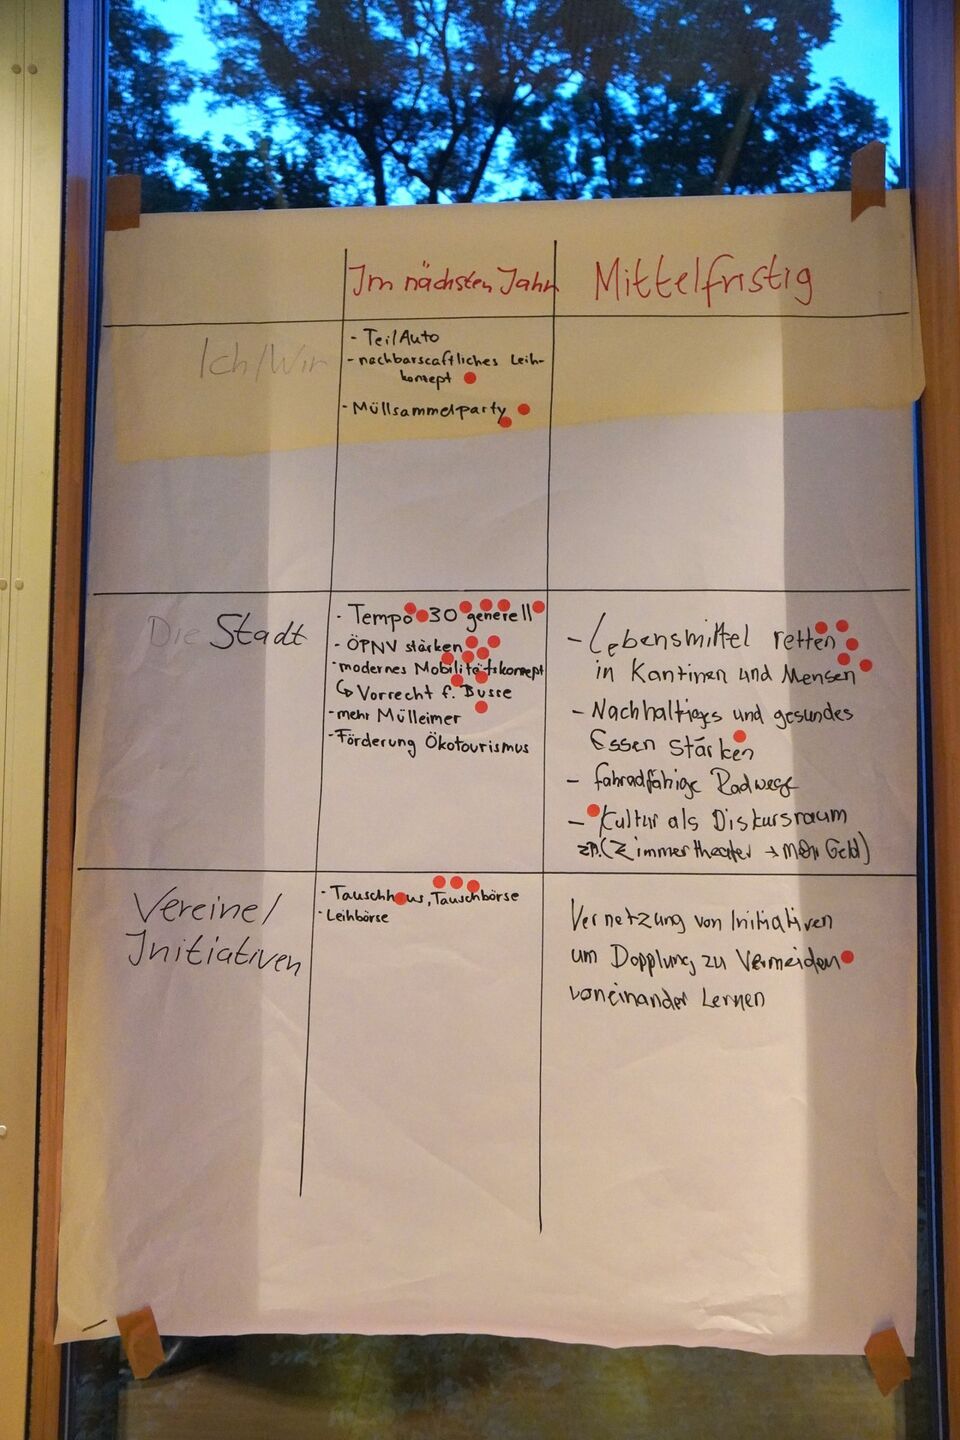 Im nächsten Jahr
Mittelfristig
Ich/Wir
- TeilAuto
- nachbarscaftliches Leih-
konzept
- Müllsammelparty
Die Stadt
- Tempo 30 generell
- ÖPNV stärken
- modernes Mobilitätskonzept
↳ Vorrecht f. Busse
- mehr Mülleimer
- Förderung Ökotourismus
- Lebensmittel retten
in Kantinen und Mensen
- Nachhaltiges und gesundes
Essen stärken
- fahradfähige Radwege
- Kultur als Diskursraum
(Zimmertheater → mehr Geld)
Vereine/
Initiativen
- Tauschhaus, Tauschbörse
- Leihbörse
Vernetzung von Initiativen
um Dopplung zu Vermeiden
voneinander Lernen